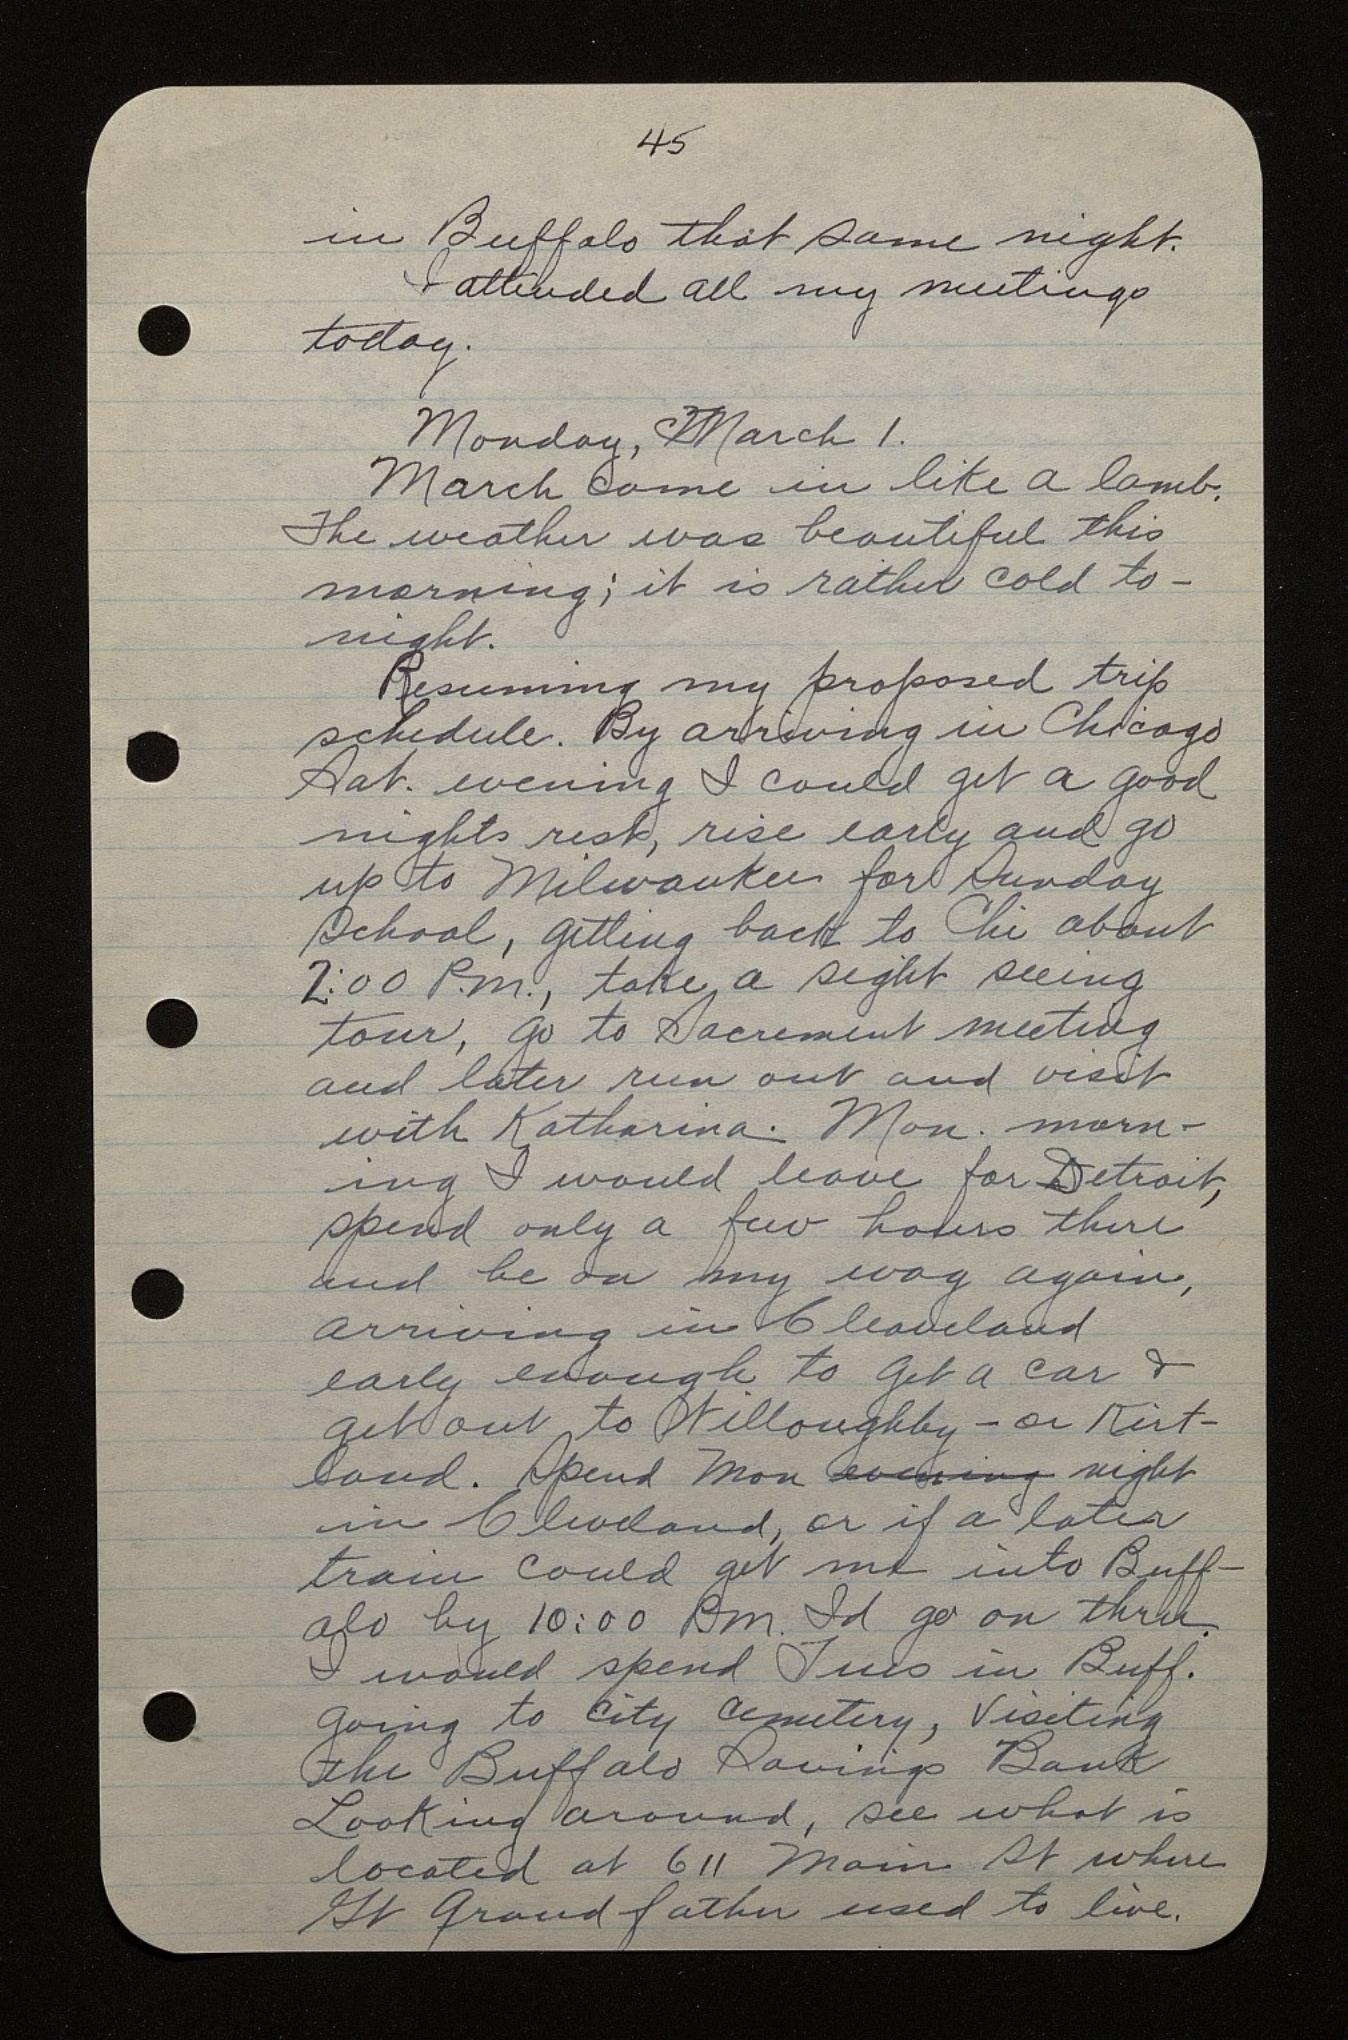 45
in Buffalo that same night.
I attended all my meetings
today.
Monday, March 1.
March came in like a lamb.
The weather was beautiful this
morning; it is rather cold to-
night.
Resuming my proposed trip
schedule. By arriving in Chicago
Sat. evening I could get a good
nights rest, rise early and go
up to Milwaukee for Sunday
School, getting back to Chi about
2:00 P.M., take a sight seeing
tour, go to Sacrement meeting
and later run out and visit
with Katharina. Mon. morn-
ing I would leave for Detroit,
spend only a few hours there
and be on my way again,
arriving in Cleaveland
early enough to get a car &
get out to Willoughby - or Kirt-
land. Spend Mon evening night
in Cleveland, or if a later
train could get me into Buff-
alo by 10:00 P.M. Id go on thru.
I would spend Tues in Buff.
going to city cemetery, Visiting
the Buffalo Savings Bank
Looking around, see what is
located at 611 Main St where
Gt Grandfather used to live.